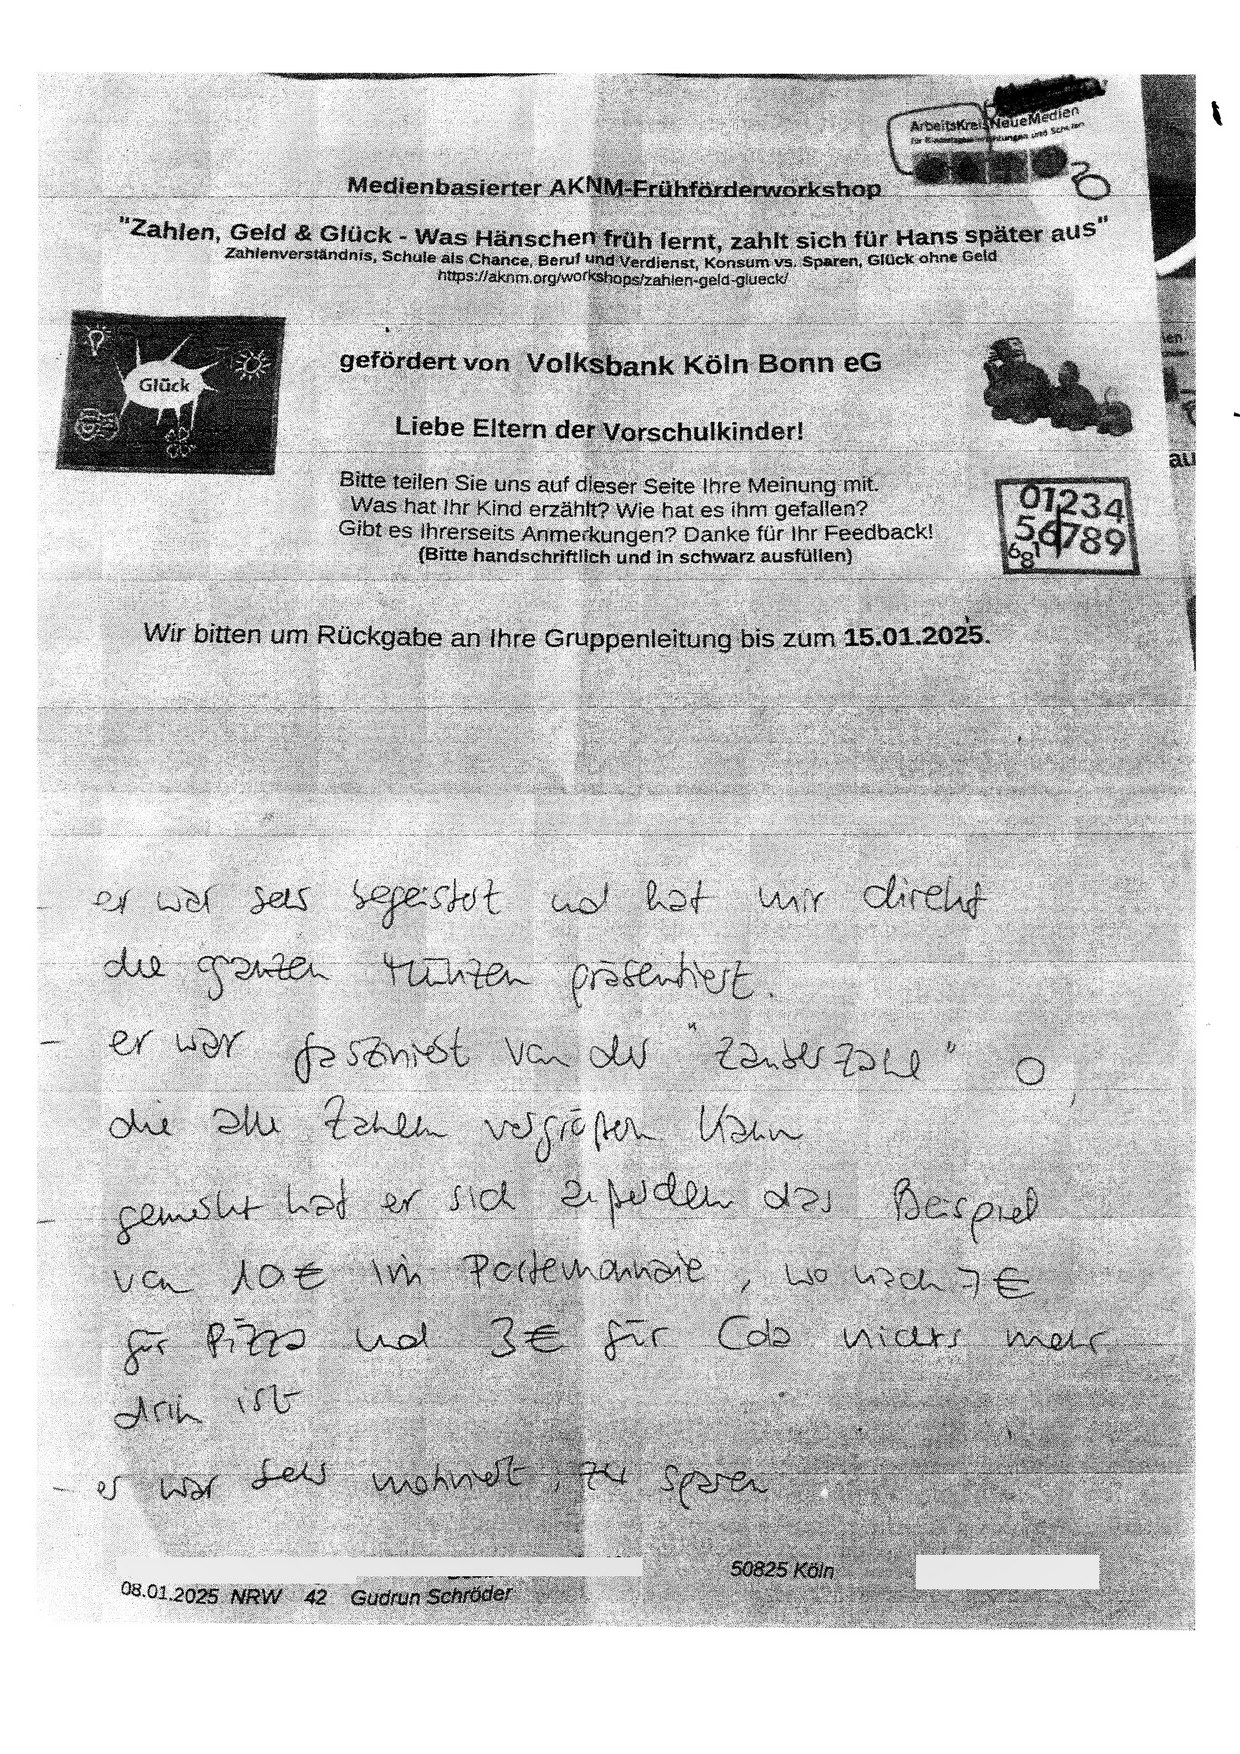 ArbeitsKreis NeueMedien
für Kindertageseinrichtungen und Schulen
Medienbasierter AKNM-Frühförderworkshop
"Zahlen, Geld & Glück - Was Hänschen früh lernt, zahlt sich für Hans später aus"
Zahlenverständnis, Schule als Chance, Beruf und Verdienst, Konsum vs. Sparen, Glück ohne Geld
https://aknm.org/workshops/zahlen-geld-glueck/
Glück
gefördert von Volksbank Köln Bonn eG
Liebe Eltern der Vorschulkinder!
Bitte teilen Sie uns auf dieser Seite Ihre Meinung mit.
Was hat Ihr Kind erzählt? Wie hat es ihm gefallen?
Gibt es Ihrerseits Anmerkungen? Danke für Ihr Feedback!
(Bitte handschriftlich und in schwarz ausfüllen)
01234
56789
681
Wir bitten um Rückgabe an Ihre Gruppenleitung bis zum 15.01.2025.
- er war sehr begeistert und hat mir direkt
die ganzen Münzen präsentiert.
- er war fasziniert von der "Zauberzahl" 0
die alle Zahlen vergrößern kann
- gemerkt hat er sich außerdem das Beispiel
von 10€ im Portemonnaie, wo nach 7€
für Pizza und 3€ für Cola nichts mehr
drin ist
- er war sehr motiviert, zu sparen
50825 Köln
08.01.2025 NRW 42 Gudrun Schröder